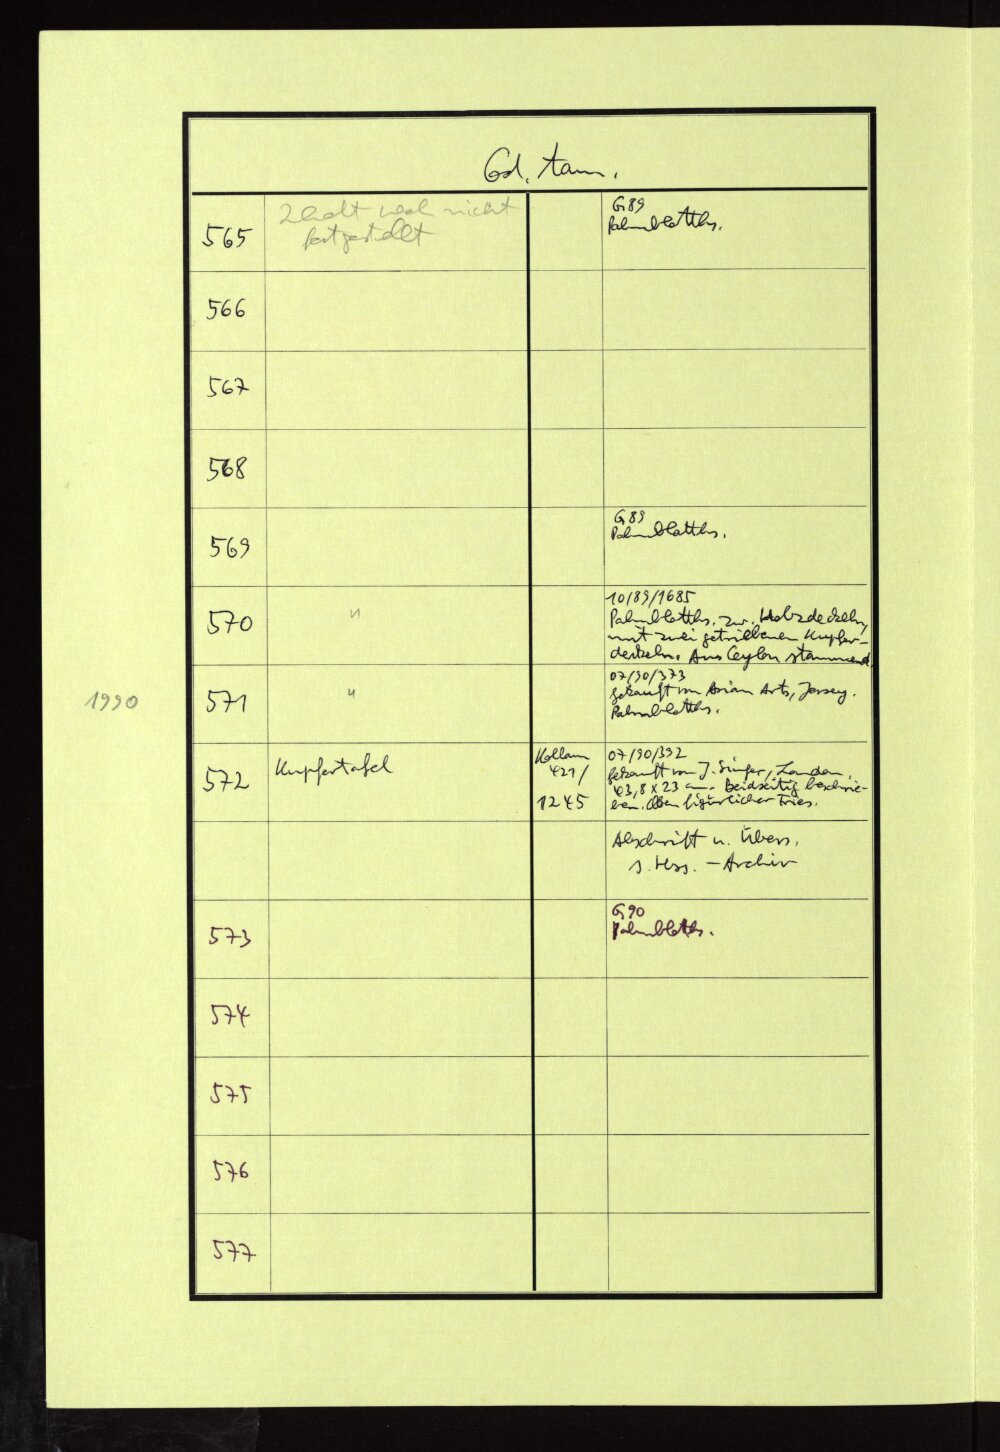 Cod. tam.
565
Inhalt noch nicht
festgestellt
G 89
Palmblatths.
566
567
568
569
G 89
Palmblatths.
570
"
10/89/1685
Palmblatths. zw. Holzdeckeln,
mit zwei getriebenen Kupfer-
deckeln. Aus Ceylon stammend.
1990
571
"
07/90/373
gekauft von Asian Arts, Jersey.
Palmblatths.
572
Kupfertafel
Kollam
421/
1245
07/90/392
gekauft von J. Singer, London.
43,8 x 23 cm. Beidseitig beschrie-
ben. Oben figürlicher Fries.
Abschrift u. Übers.
s. Hss. - Archiv
573
G 90
Palmblatths.
574
575
576
577